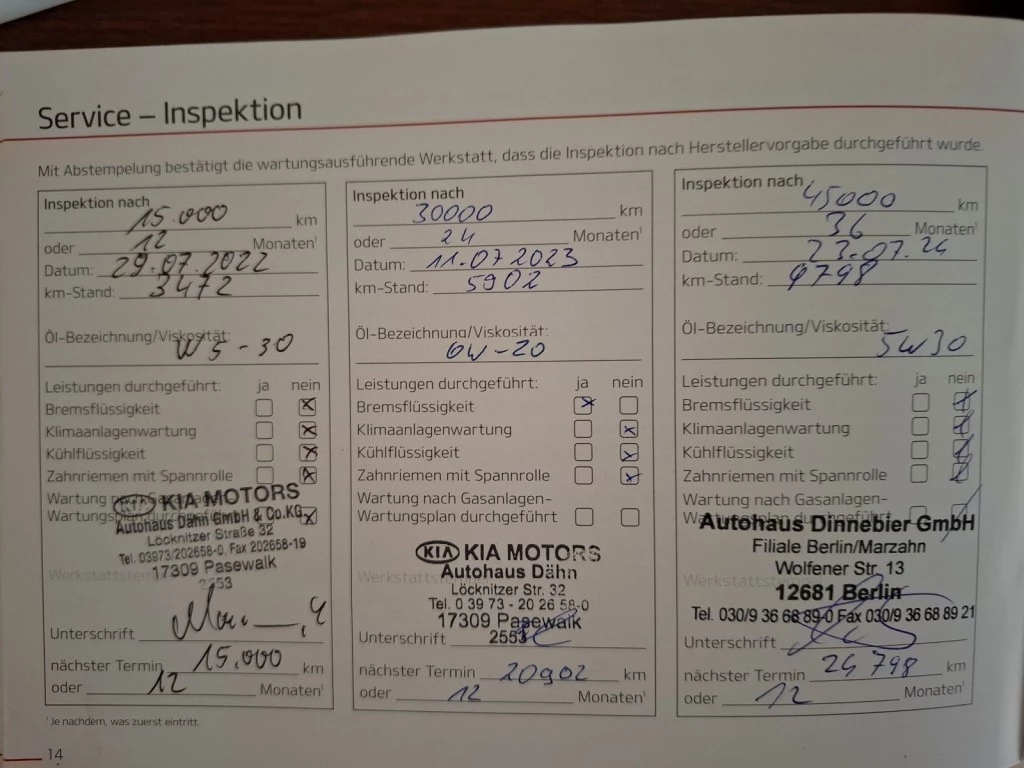 Service – Inspektion
Mit Abstempelung bestätigt die wartungsausführende Werkstatt, dass die Inspektion nach Herstellervorgabe durchgeführt wurde.
Inspektion nach
15.000 km
oder 12 Monaten¹
Datum: 29.07.2022
km-Stand: 3472
Öl-Bezeichnung/Viskosität:
W5-30
Leistungen durchgeführt: ja nein
Bremsflüssigkeit
Klimaanlagenwartung
Kühlflüssigkeit
Zahnriemen mit Spannrolle
Wartung
KIA MOTORS
Autohaus Dähn GmbH & Co.KG
Löcknitzer Straße 32
Tel. 03973/202658-0, Fax 202658-19
17309 Pasewalk
2553
Unterschrift
nächster Termin 15.000 km
oder 12 Monaten¹
Inspektion nach
30000 km
oder 24 Monaten¹
Datum: 11.07.2023
km-Stand: 5902
Öl-Bezeichnung/Viskosität:
0W-20
Leistungen durchgeführt: ja nein
Bremsflüssigkeit
Klimaanlagenwartung
Kühlflüssigkeit
Zahnriemen mit Spannrolle
Wartung nach Gasanlagen-
Wartungsplan durchgeführt
KIA KIA MOTORS
Autohaus Dähn
Löcknitzer Str. 32
Tel. 0 39 73 - 20 26 58-0
17309 Pasewalk
2553
Unterschrift
nächster Termin 20902 km
oder 12 Monaten¹
Inspektion nach
45000 km
oder 36 Monaten¹
Datum: 23.07.24
km-Stand: 9798
Öl-Bezeichnung/Viskosität:
5W30
Leistungen durchgeführt: ja nein
Bremsflüssigkeit
Klimaanlagenwartung
Kühlflüssigkeit
Zahnriemen mit Spannrolle
Wartung nach Gasanlagen-
Autohaus Dinnebier GmbH
Filiale Berlin/Marzahn
Wolfener Str. 13
12681 Berlin
Tel. 030/9 36 68 89-0 Fax 030/9 36 68 89 21
Unterschrift
nächster Termin 24798 km
oder 12 Monaten¹
¹Je nachdem, was zuerst eintritt.
14